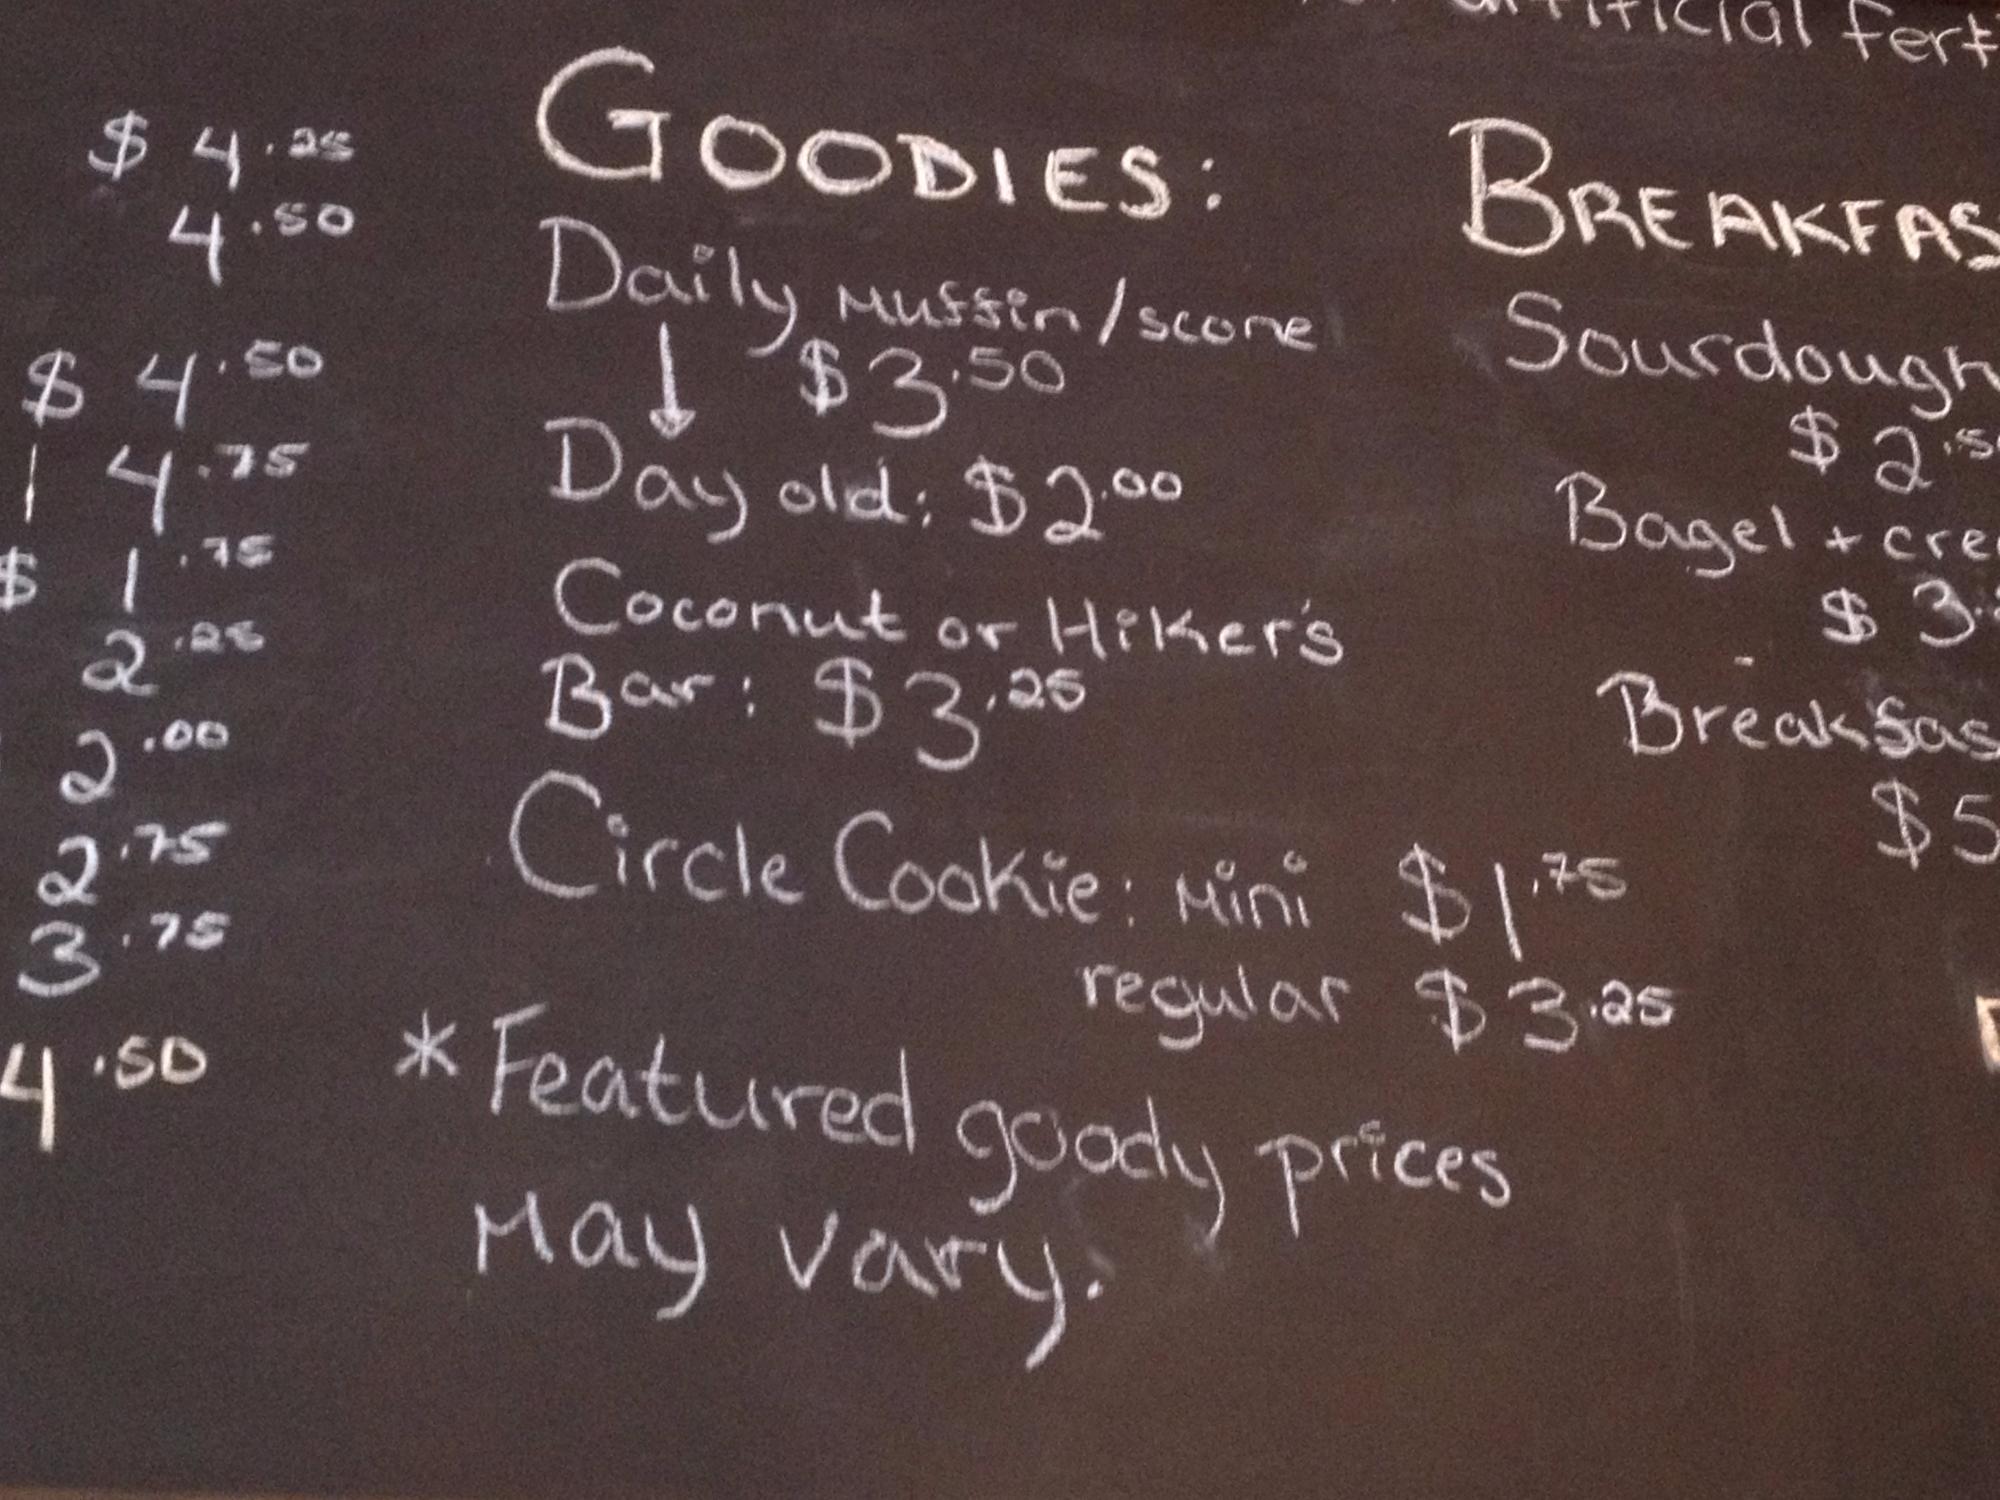 $ 4.25
4.50
$ 4.50
4.75
$ 1.75
2.25
2.00
2.75
3.75
4.50
GOODIES:
Daily Muffin/scone
$3.50
Day old: $2.00
Coconut or Hiker's
Bar: $3.25
Circle Cookie: Mini $1.75
regular $3.25
*Featured goody prices
May vary.
artificial fert
BREAKFAS
Sourdough
$2.5
Bagel + cre
$3.
Breakfas
$5